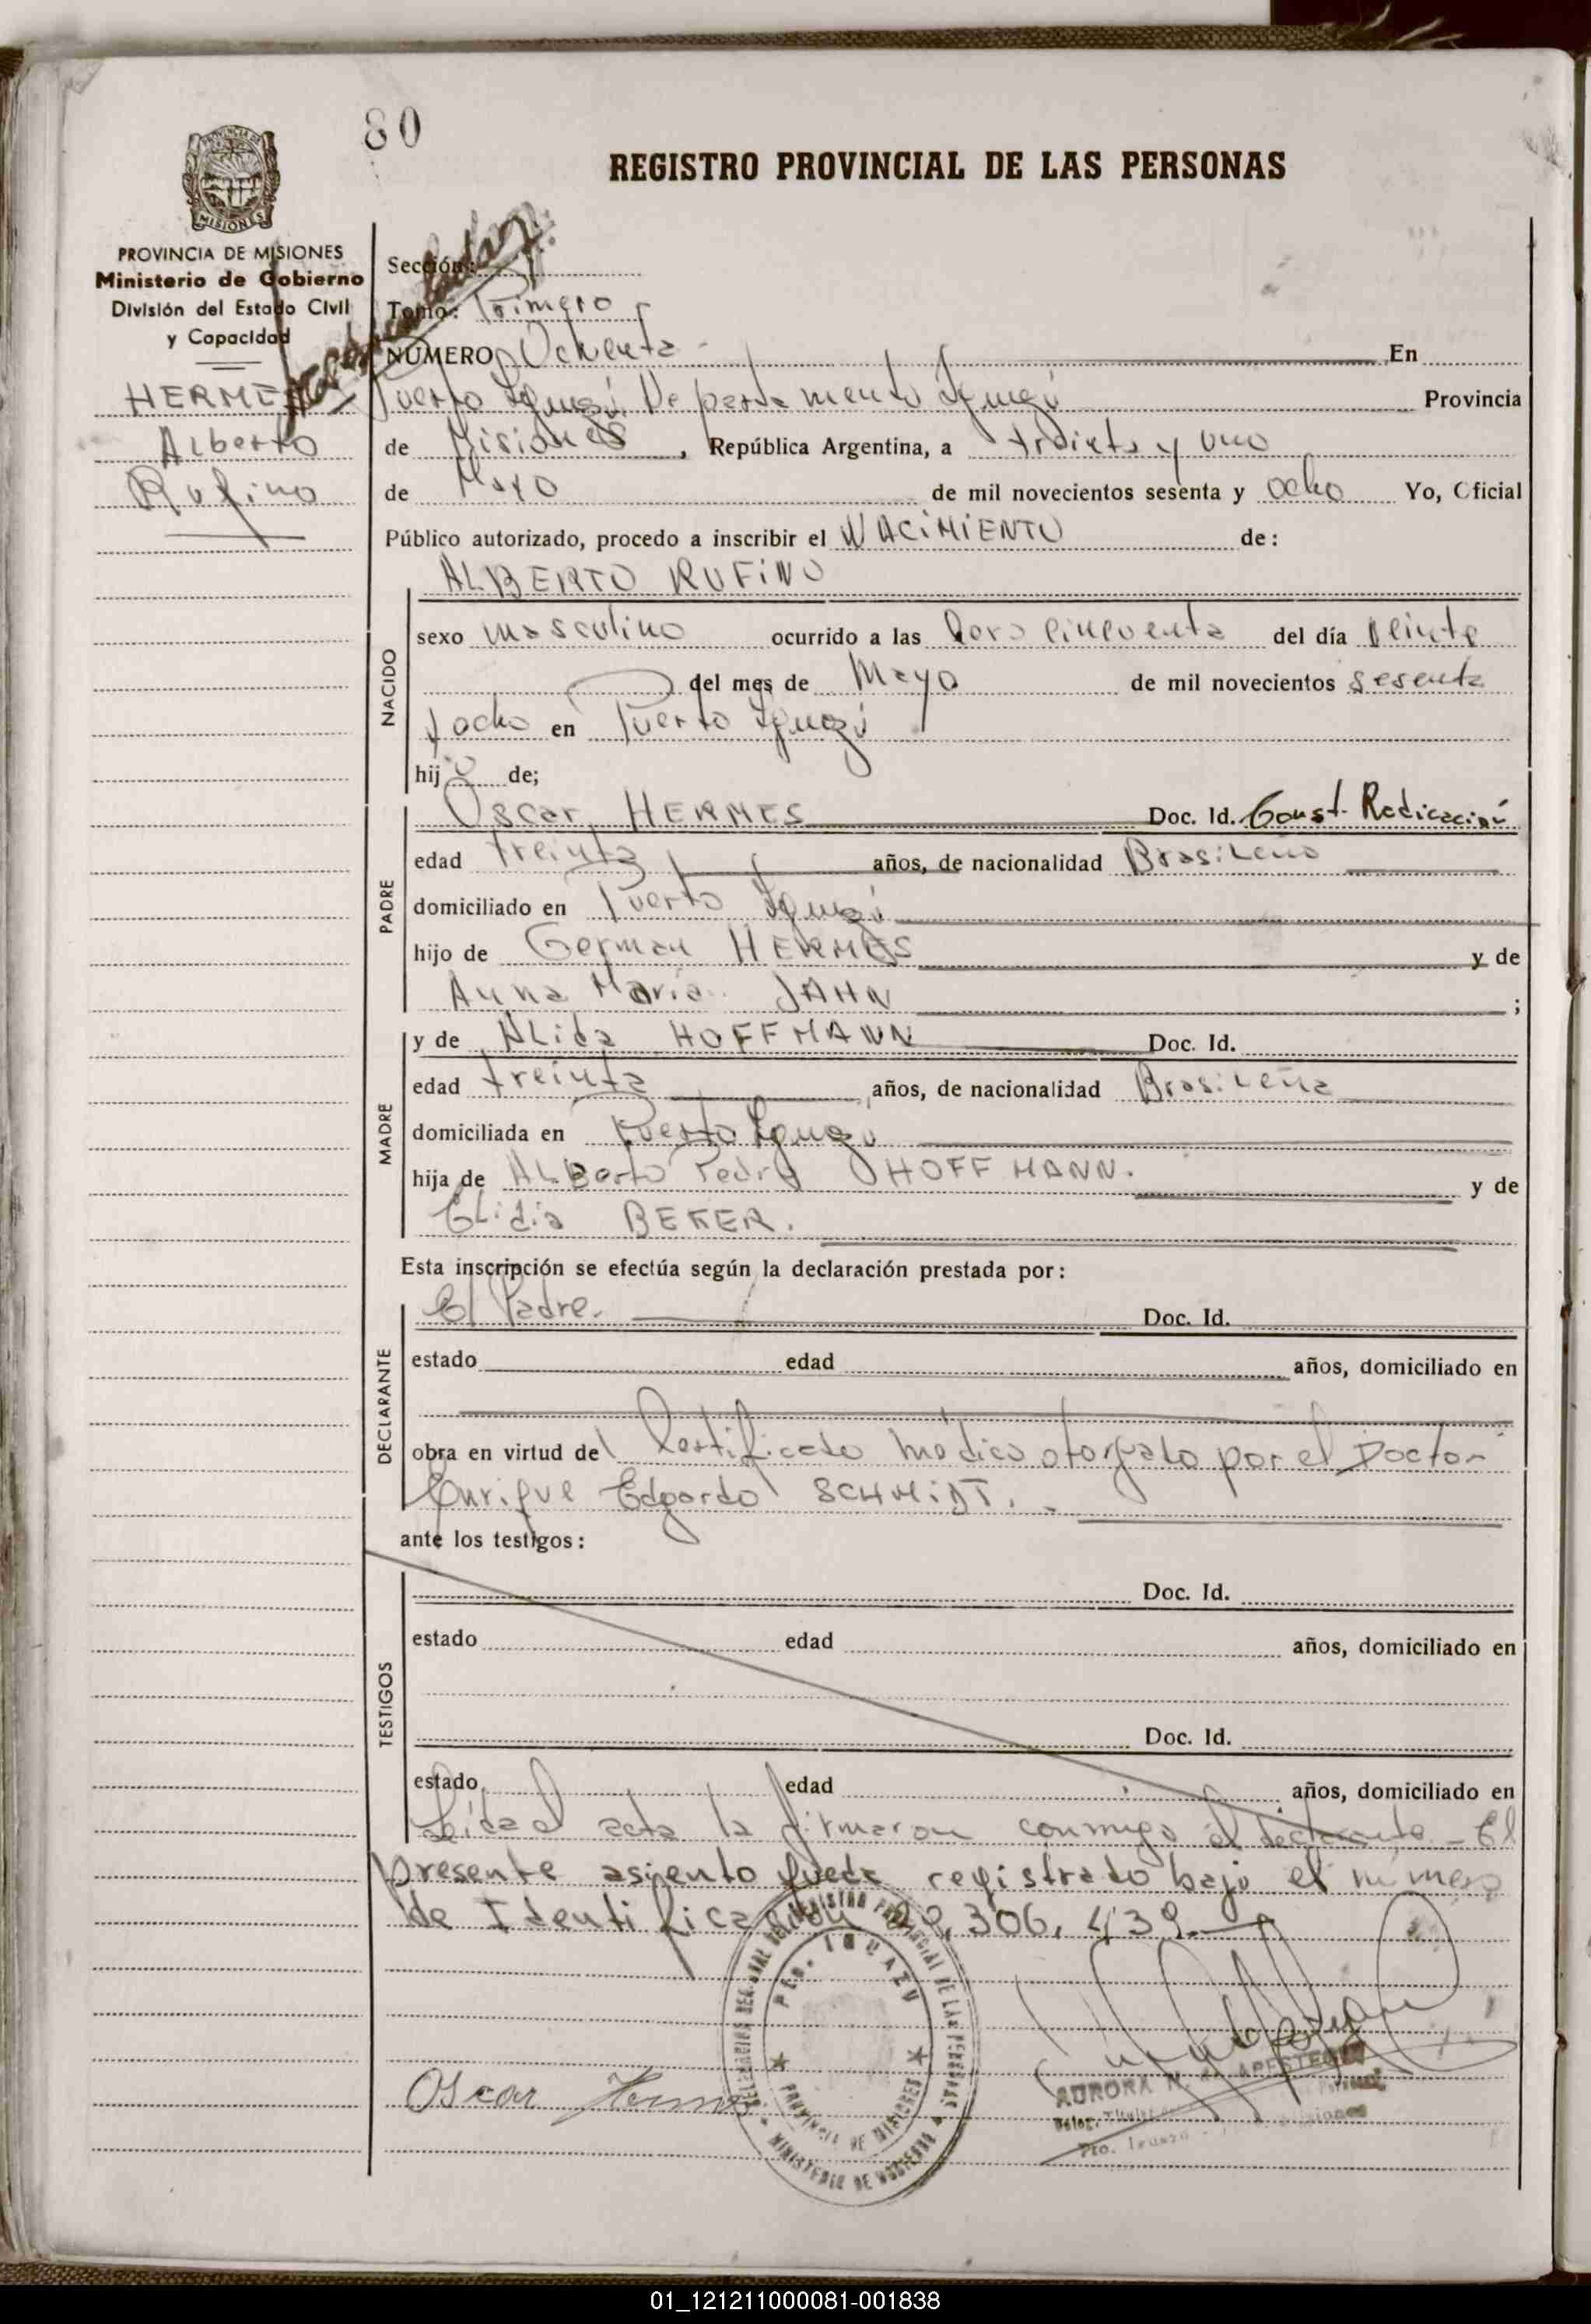 80
REGISTRO PROVINCIAL DE LAS PERSONAS
PROVINCIA DE MISIONES
Ministerio de Gobierno
División del Estado Civil
y Capacidad
HERMES
Alberto
Rufino
Sección:
Tomo: Primero
NÚMERO Ochenta - En
Puerto Iguazú Departamento Iguazú Provincia
de Misiones, República Argentina, a treinta y uno
de Mayo de mil novecientos sesenta y ocho Yo, Oficial
Público autorizado, procedo a inscribir el NACIMIENTO de:
ALBERTO RUFINO
NACIDO
sexo masculino ocurrido a las cero cincuenta del día veinte
del mes de Mayo de mil novecientos sesenta
y ocho en Puerto Iguazú
hijo de;
PADRE
Oscar HERMES Doc. Id. Const. Radicación
edad treinta años, de nacionalidad Brasileño
domiciliado en Puerto Iguazú
hijo de German HERMES y de
Anna María JAHN ;
MADRE
y de Alida HOFFMANN Doc. Id.
edad treinta años, de nacionalidad Brasileña
domiciliada en Puerto Iguazú
hija de Alberto Pedro HOFFMANN. y de
Elidia BEKER.
Esta inscripción se efectúa según la declaración prestada por:
DECLARANTE
El Padre. Doc. Id.
estado edad años, domiciliado en
obra en virtud del Certificado médico otorgado por el Doctor
Enrique Edgardo SCHMIDT. -
ante los testigos:
TESTIGOS
Doc. Id.
estado edad años, domiciliado en
Doc. Id.
estado edad años, domiciliado en
Leída el acta la firmaron conmigo el declarante - El
presente asiento queda registrado bajo el número
de Identificación 20.306.439.-
Oscar Hermes
REGISTRO PROVINCIAL DE LAS PERSONAS
PTO. IGUAZU
PROVINCIA DE MISIONES
MINISTERIO DE GOBIERNO
AURORA N. APESTEGUI
Pto. Iguazú - Misiones
01_121211000081-001838